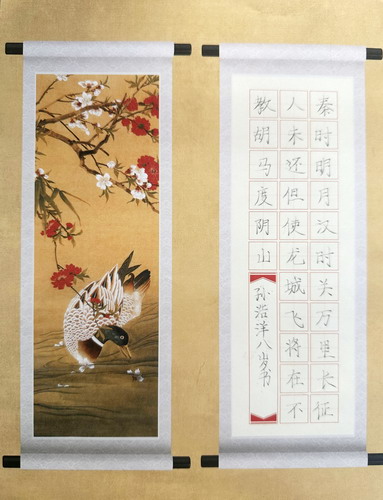 秦时明月汉时关万里长征
人未还但使龙城飞将在不
教胡马度阴山
孙浩洋八岁书